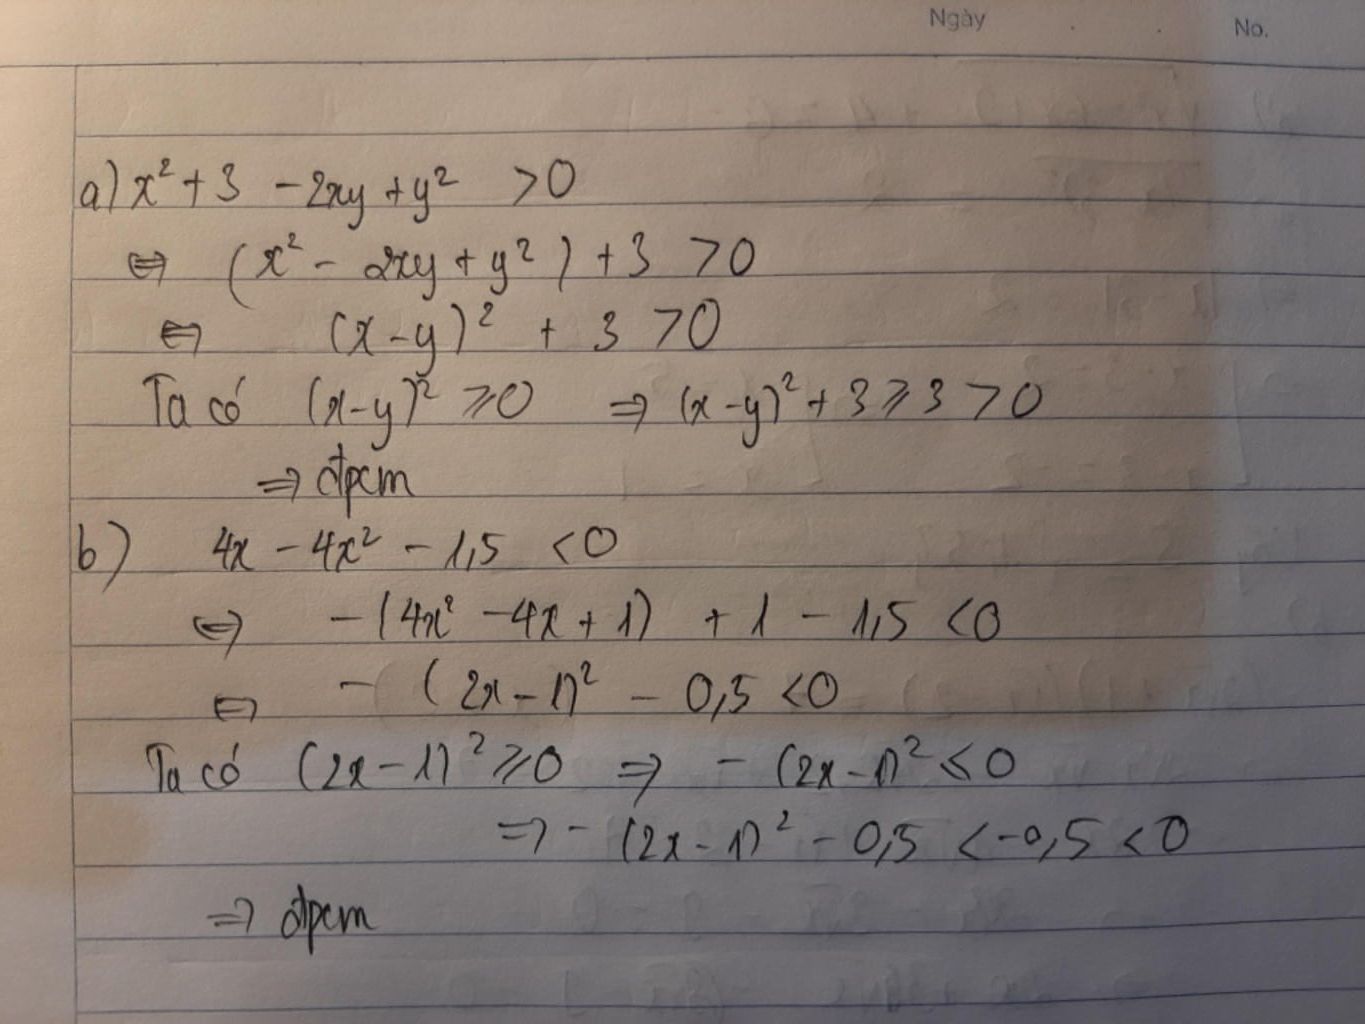 Ngày No.
a) x² + 3 - 2xy + y² > 0
⇔ (x² - 2xy + y²) + 3 > 0
⇔ (x-y)² + 3 > 0
Ta có (x-y)² ⩾ 0 ⇒ (x-y)² + 3 ⩾ 3 > 0
⇒ đpcm
b) 4x - 4x² - 1,5 < 0
⇔ -(4x² - 4x + 1) + 1 - 1,5 < 0
⇔ - (2x - 1)² - 0,5 < 0
Ta có (2x - 1)² ⩾ 0 ⇒ - (2x - 1)² ⩽ 0
⇒ - (2x - 1)² - 0,5 < -0,5 < 0
⇒ đpcm